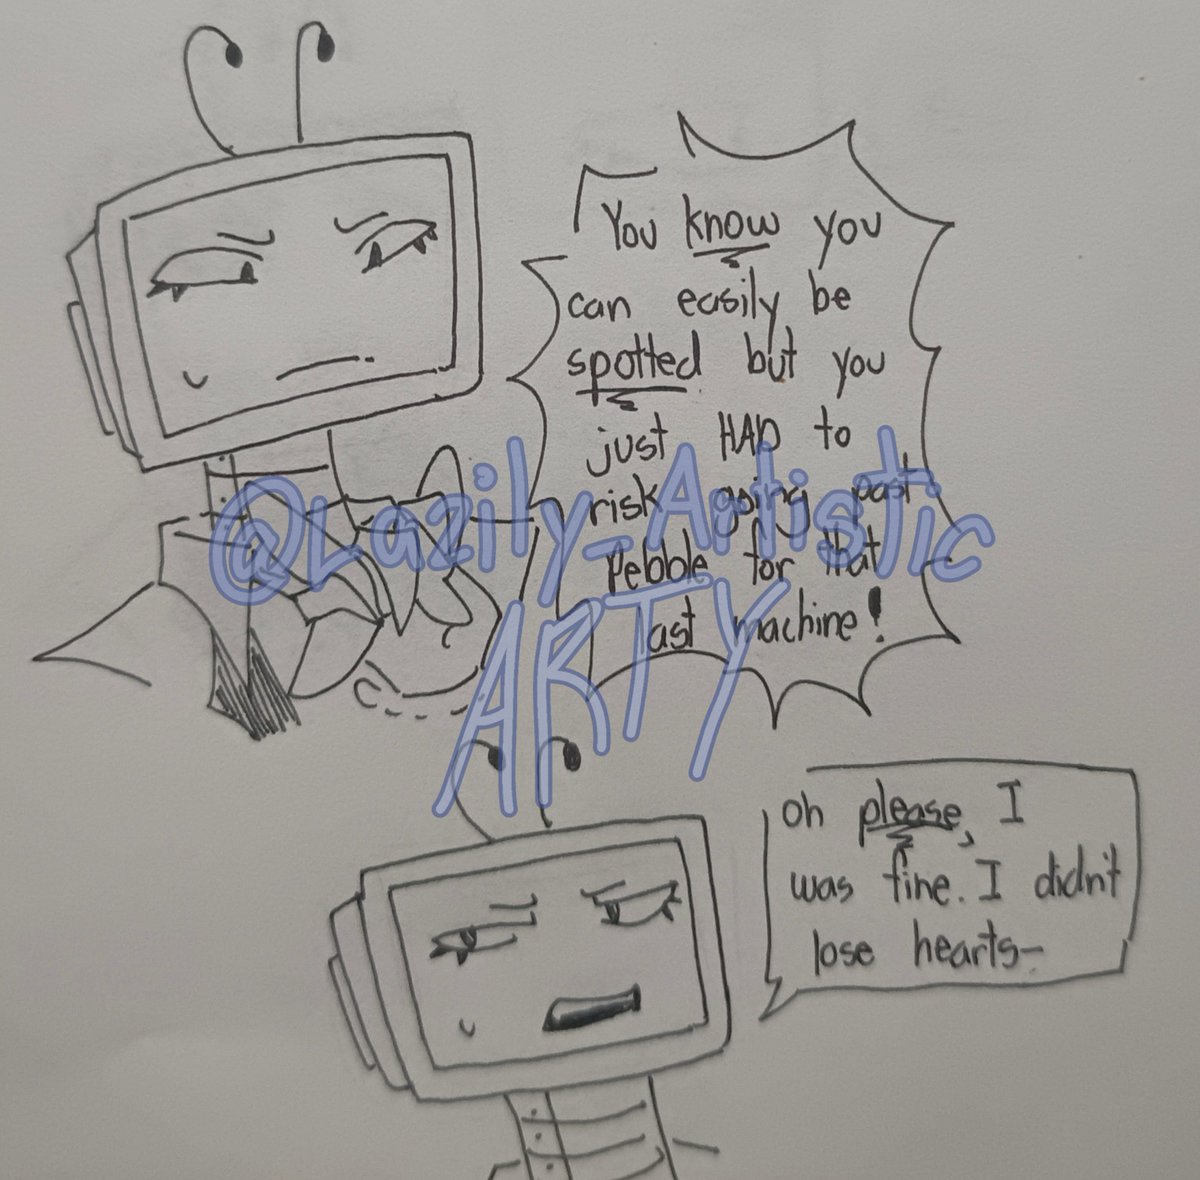 You know you
can easily be
spotted but you
just HAD to
risk going past
Pebble for that
last machine!
@Lazily_Artistic
ARTY
oh please, I
was fine. I didn't
lose hearts-